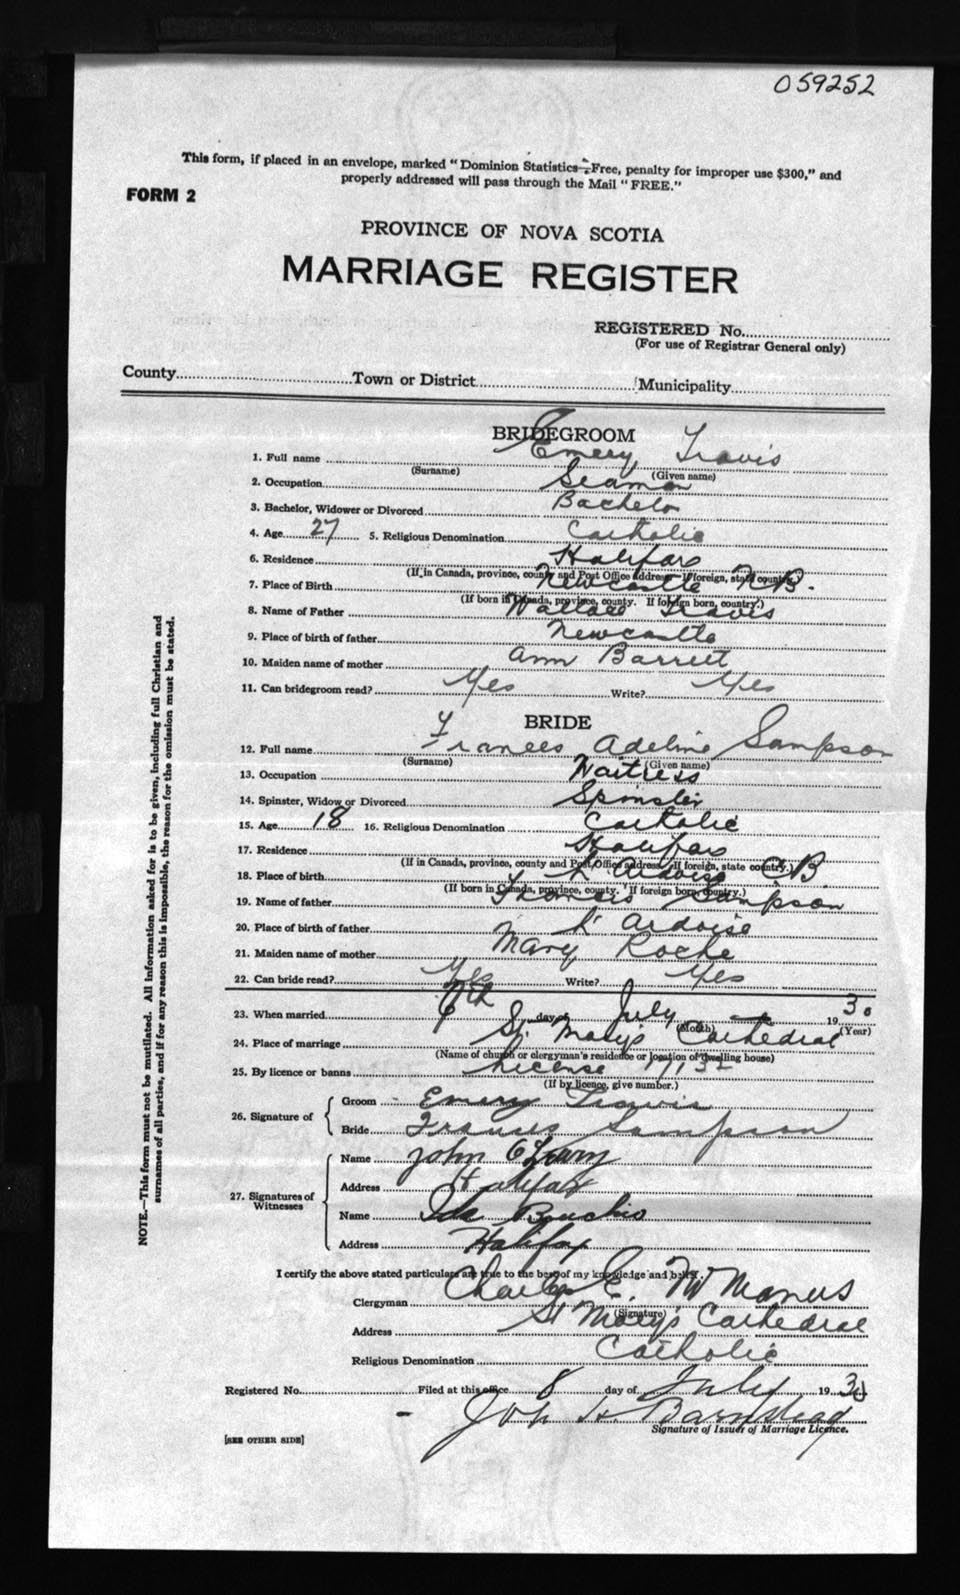 059252
This form, if placed in an envelope, marked "Dominion Statistics—Free, penalty for improper use $300," and
properly addressed will pass through the Mail "FREE."
FORM 2
PROVINCE OF NOVA SCOTIA
MARRIAGE REGISTER
REGISTERED No.
(For use of Registrar General only)
County Town or District Municipality
BRIDEGROOM
1. Full name Emery Travis
(Surname) (Given name)
2. Occupation Seaman
3. Bachelor, Widower or Divorced Bachelor
4. Age 27 5. Religious Denomination Catholic
6. Residence Halifax
(If in Canada, province, county and Post Office address. If foreign, state country.)
7. Place of Birth Newcastle N.B.
(If born in Canada, province, county. If foreign born, country.)
8. Name of Father Wallace Travis
9. Place of birth of father Newcastle
10. Maiden name of mother Ann Barrett
11. Can bridegroom read? Yes Write? Yes
BRIDE
12. Full name Frances Adeline Sampson
(Surname) (Given name)
13. Occupation Waitress
14. Spinster, Widow or Divorced Spinster
15. Age 18 16. Religious Denomination Catholic
17. Residence Halifax
(If in Canada, province, county and Post Office address. If foreign, state country.)
18. Place of birth L'Ardoise C.B.
(If born in Canada, province, county. If foreign born, country.)
19. Name of father Thomas Sampson
20. Place of birth of father L'Ardoise
21. Maiden name of mother Mary Roche
22. Can bride read? Yes Write? Yes
23. When married day of July 1930
(Month) (Year)
24. Place of marriage St. Mary's Cathedral
(Name of church or clergyman's residence or location of dwelling house)
25. By licence or banns License
(If by licence, give number.)
26. Signature of Groom Emery Travis
Bride Frances Sampson
27. Signatures of Witnesses Name John
Address Halifax
Name Ida
Address Halifax
I certify the above stated particulars are true to the best of my knowledge and belief.
Clergyman Charles E. McManus
(Signature)
Address St Mary's Cathedral
Religious Denomination Catholic
Registered No. Filed at this office 8 day of July 1930
Barnstead
Signature of Issuer of Marriage Licence.
[SEE OTHER SIDE]
NOTE.—This form must not be mutilated. All information asked for is to be given, including full Christian and
surnames of all parties, and if for any reason this is impossible, the reason for the omission must be stated.